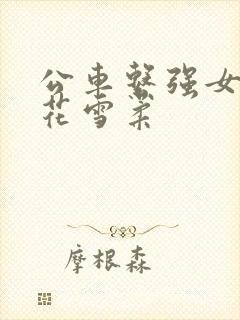 公车整强女
花雪柔
摩根森